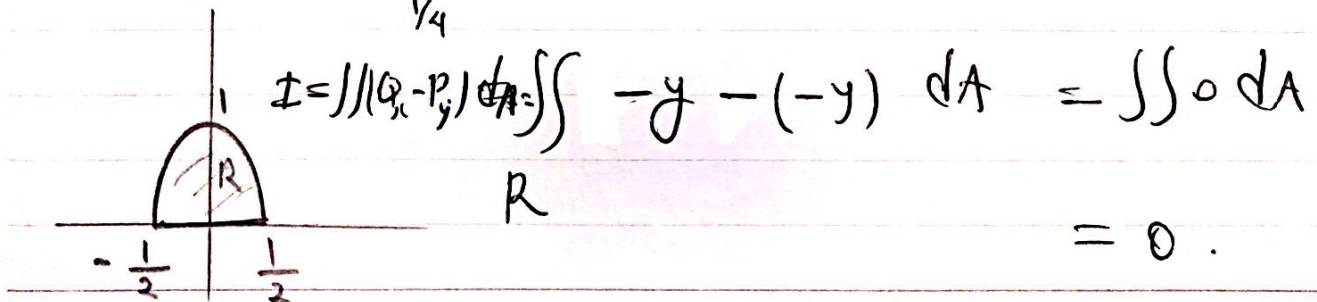 1/4
I = ∬(Qx - Py) dA = ∬ -y - (-y) dA = ∬ 0 dA
1
R
R
= 0 .
- 1/2 1/2